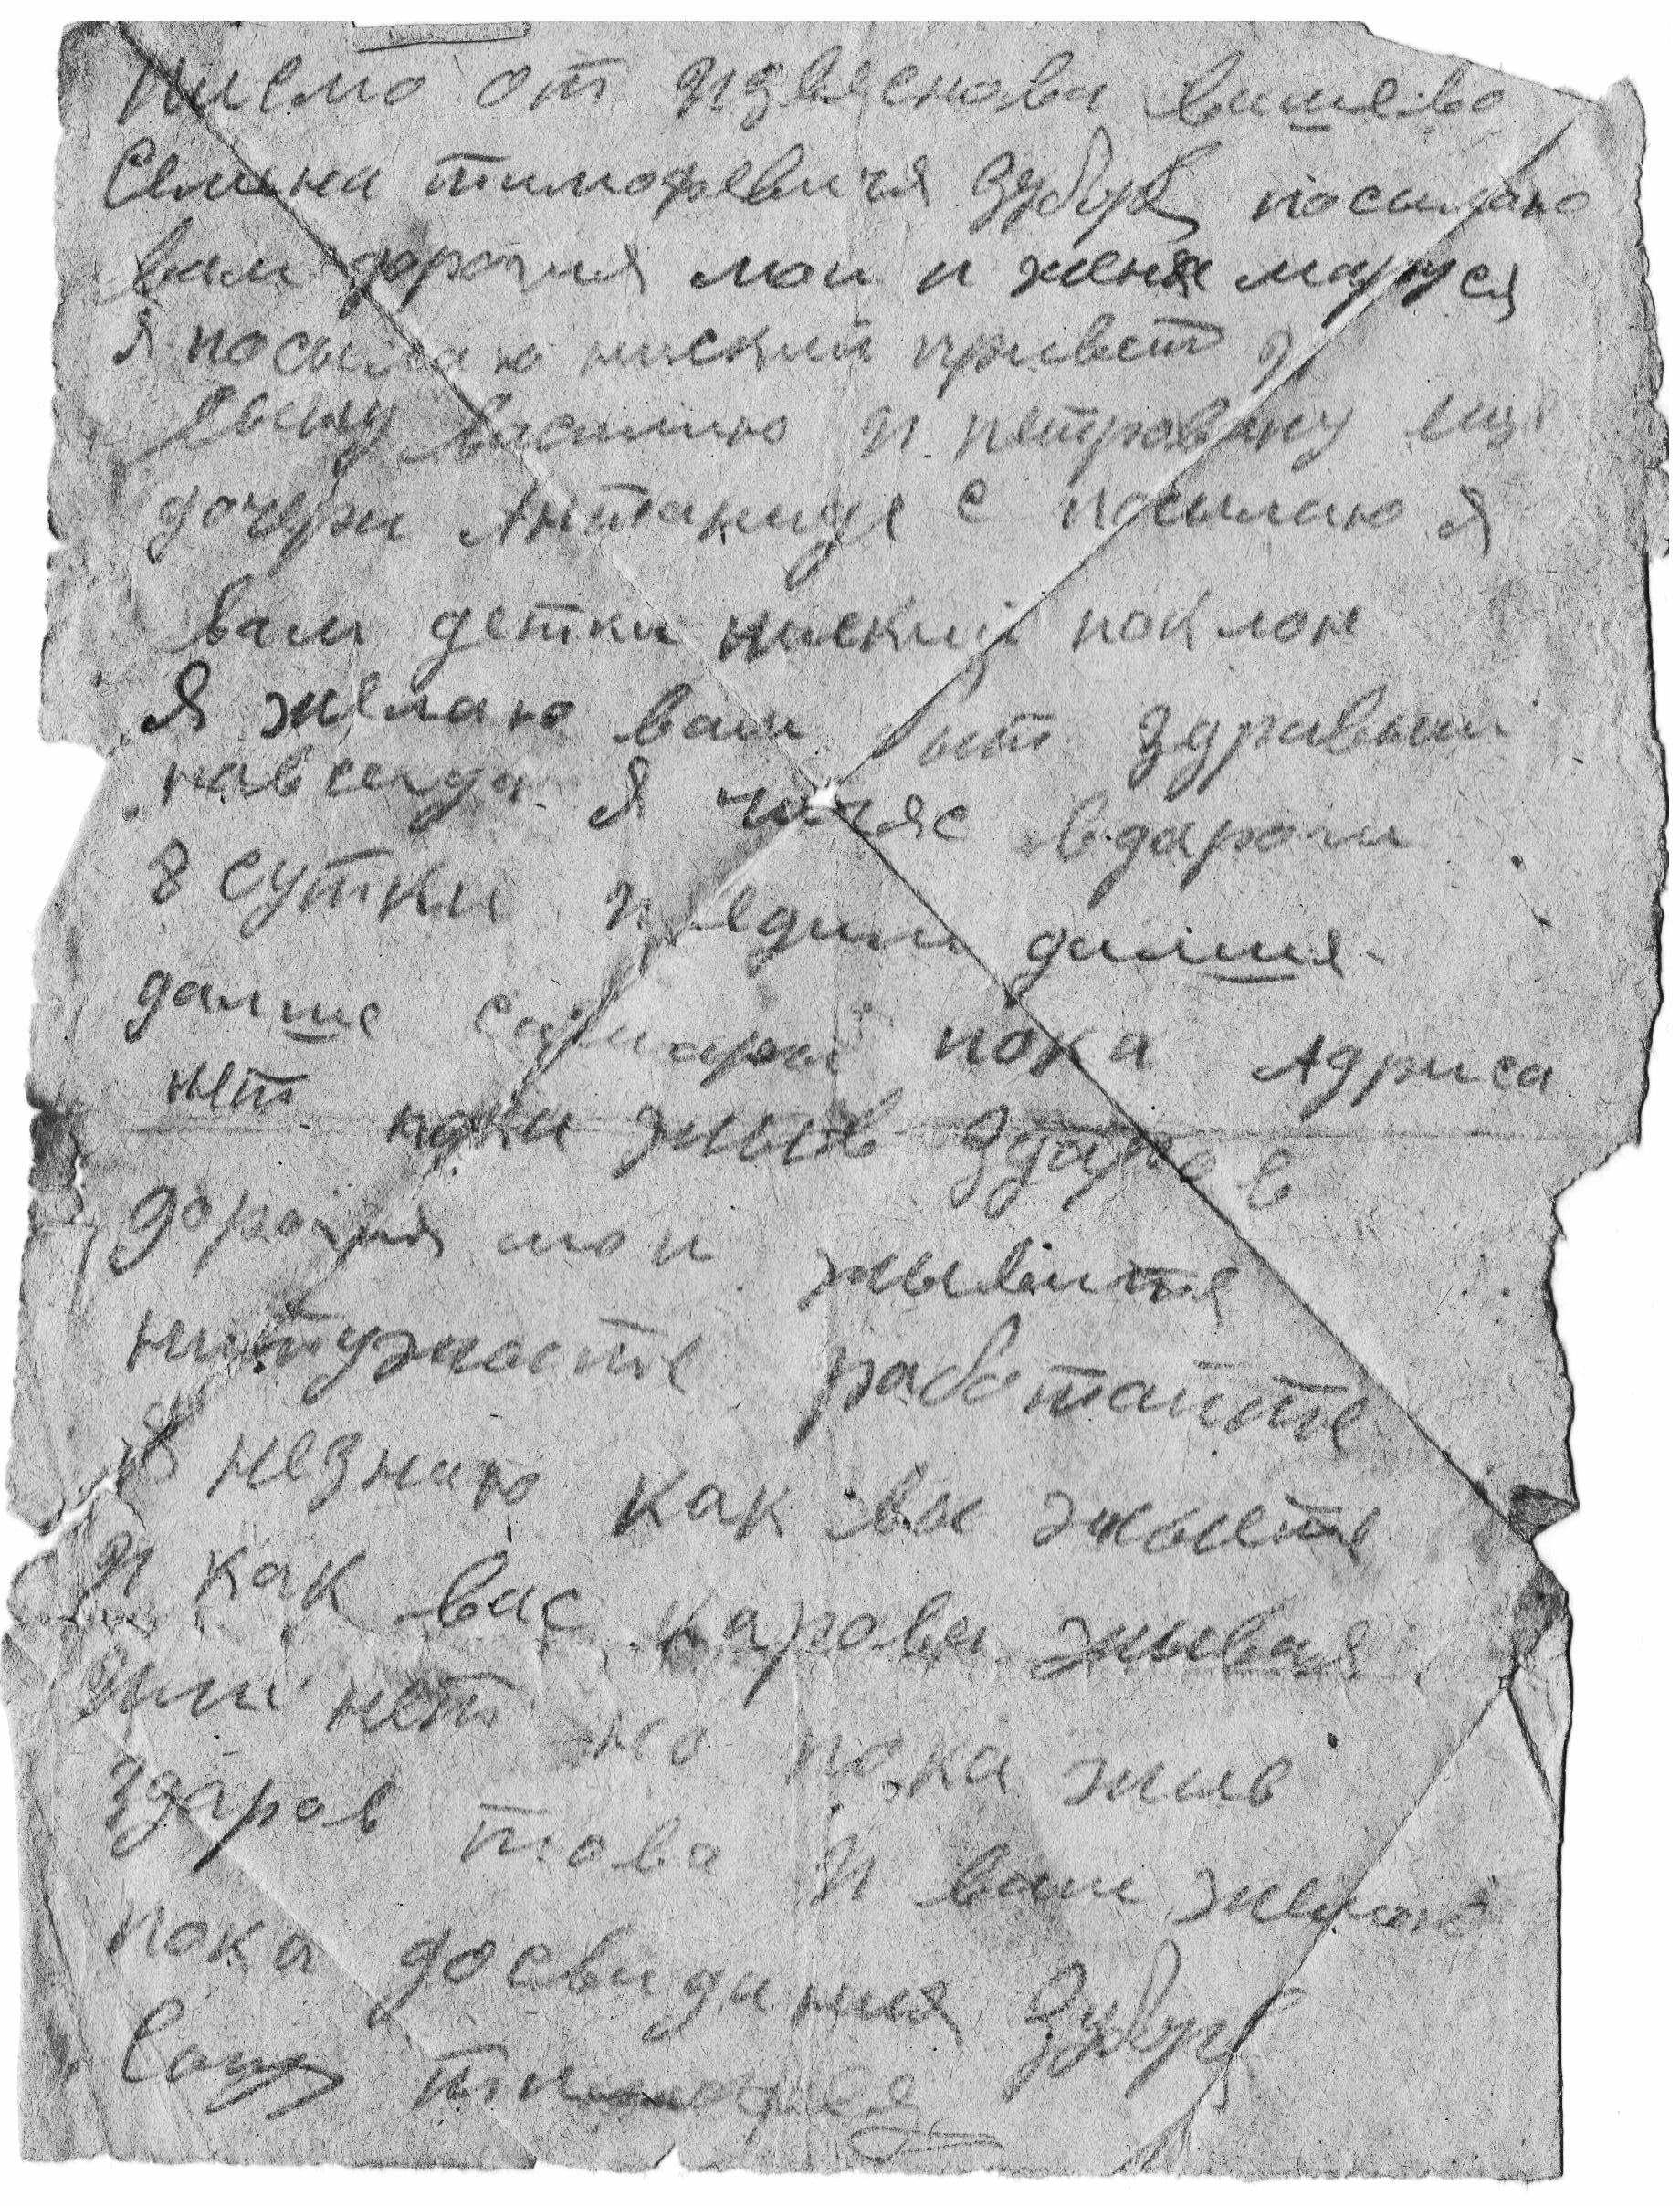 писмо от издвеснова вишево
Семена тимофевича Зубор посылаю
вам дорогия мои и женя маруся
Я посылаю ниский привет
сыну василию и петровану ищ
дочери Антаниде с посылаю я
вам детки ниский поклон
Я желаю вам быт здравыи
навсегда я чичяс вдароги
8 сутки и едим далшя
далше пока Адриса
нет пока жыв здаров
дорогия мои жывитя
нитужыте работайте
Я незнаю как вы жыветя
и как вас карова жывая
или нет но пока жыв
здаров това и вам желаю
пока досвидания Зубор
тимофея